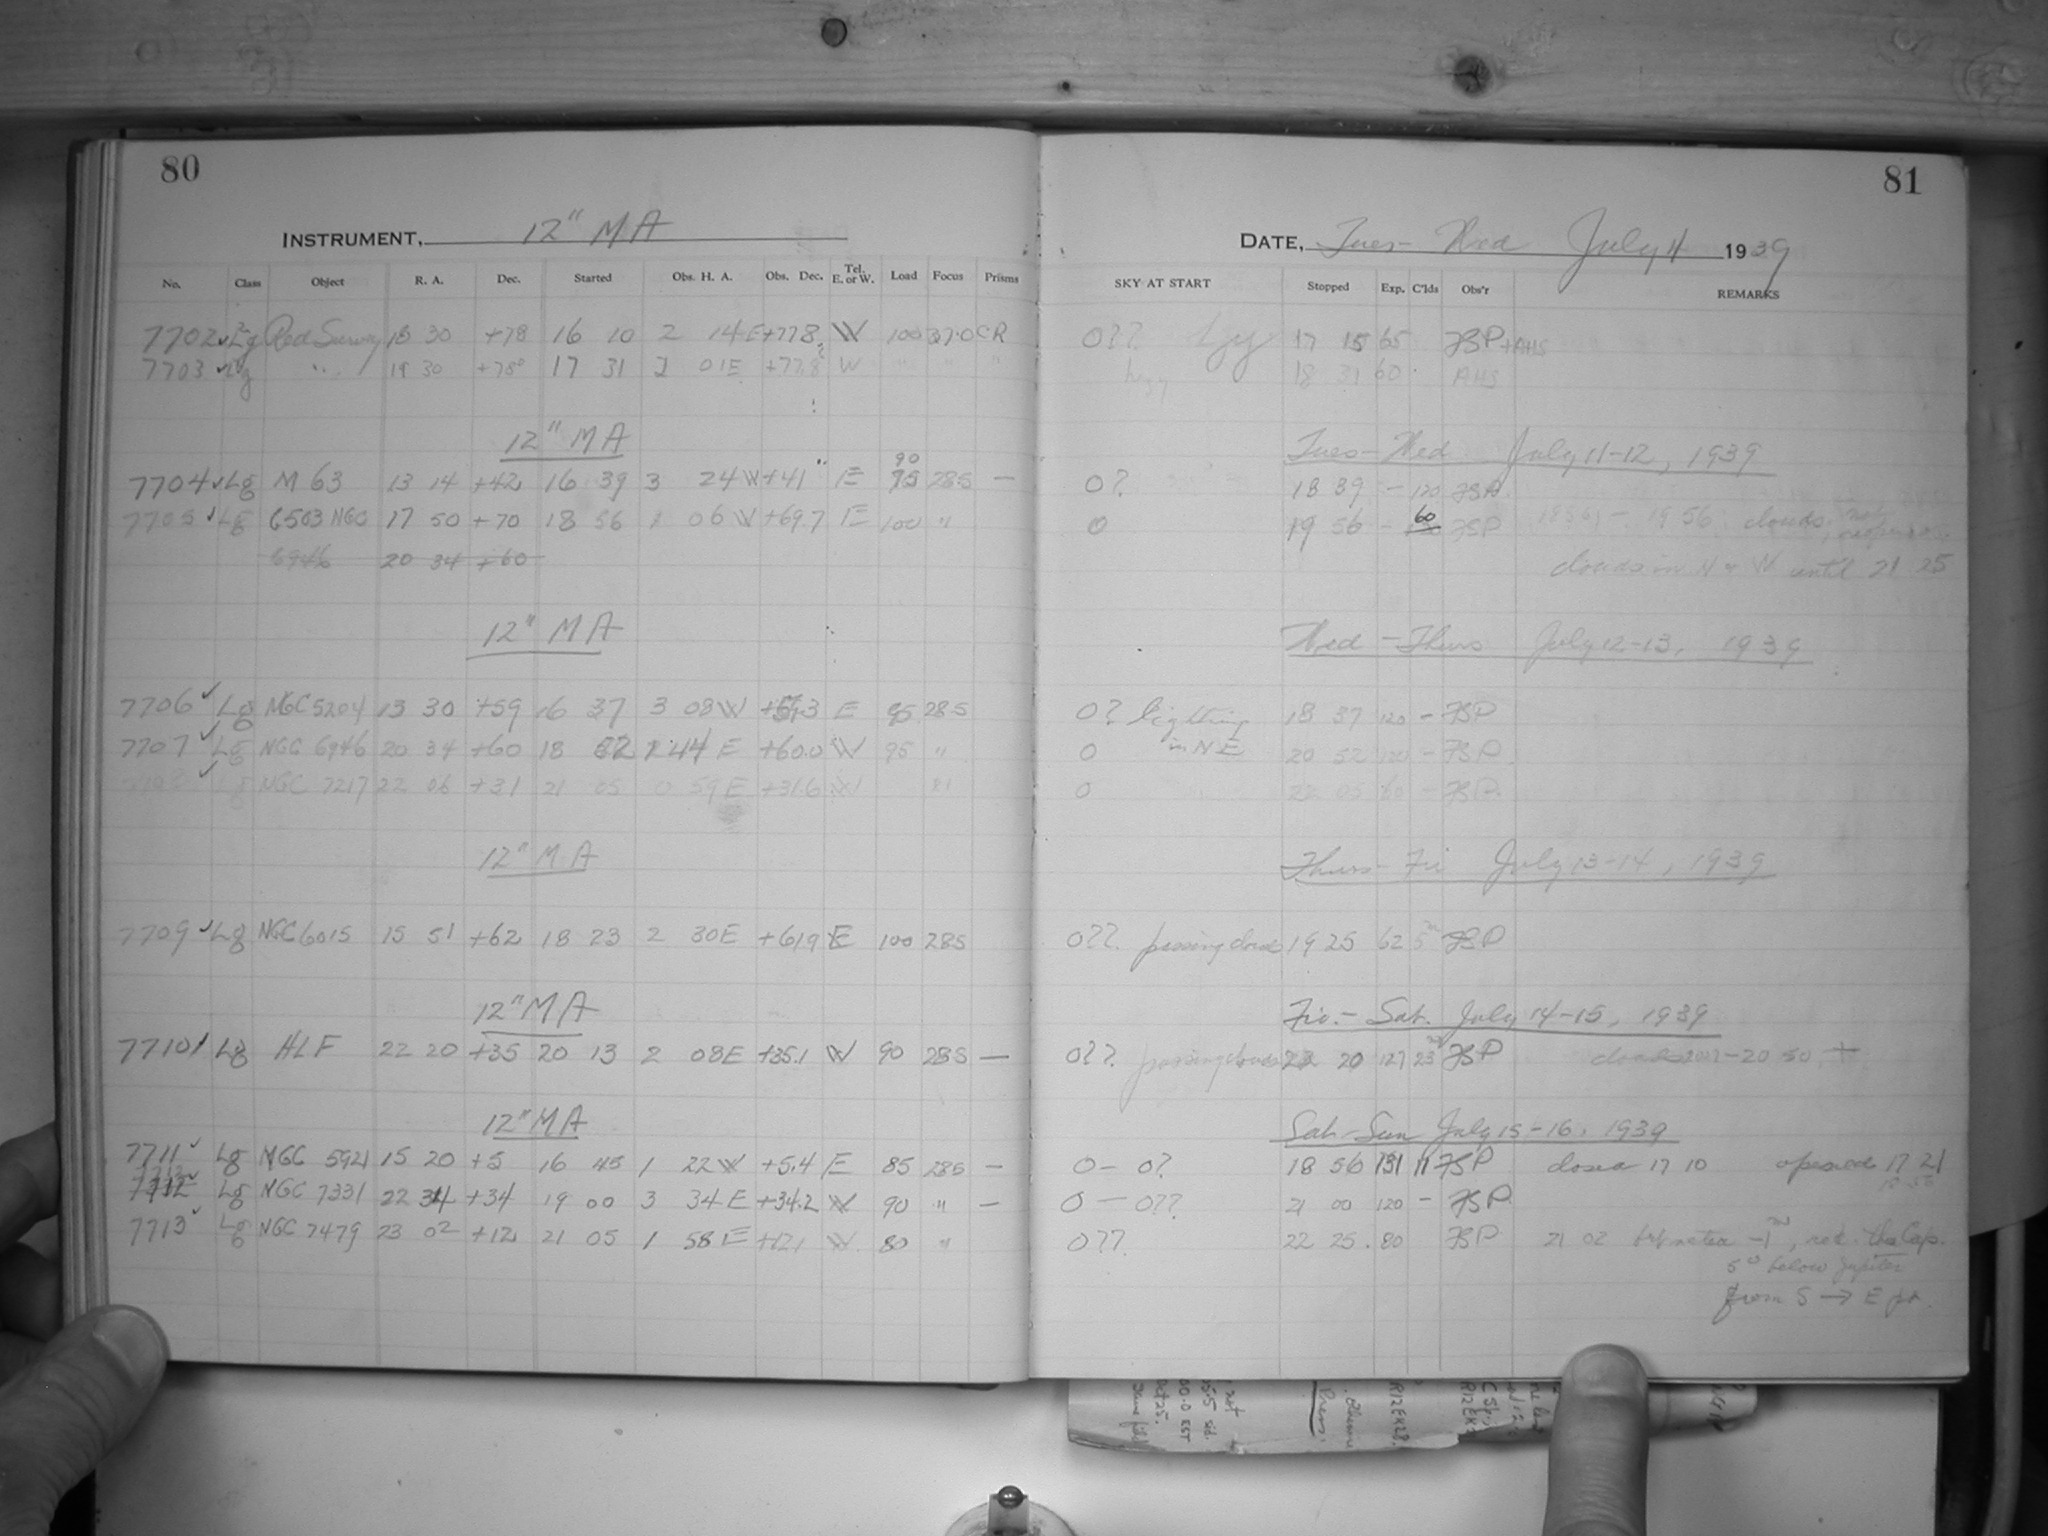 80
INSTRUMENT, 12" MA
No. Class Object R. A. Dec. Started Obs. H. A. Obs. Dec. Tel. E. or W. Load Focus Prisms
7702 Lg Red Survey 18 30 +78 16 10 2 14E +77.8 W 100 27.0 CR
7703 Lg " 19 30 +78° 17 31 2 01E +77.8 W " " "
12" MA
90
7704 Lg M 63 13 14 +42 16 39 3 24W +41 E 95 285 —
7705 Lg 6503 NGC 17 50 +70 18 56 1 06W +69.7 E 100 "
6946 20 34 +60
12" MA
7706 Lg NGC 5204 13 30 +59 16 37 3 08W E 95 285
7707 Lg NGC 6946 20 34 +60 18 52 1 44 E +60.0 W 95 "
7708 Lg NGC 7217 22 06 +31 21 05 0 59E +31.6 W
12" MA
7709 Lg NGC 6015 15 51 +62 18 23 2 30E +61.9 E 100 285
12" MA
7710 Lg HLF 22 20 +35 20 13 2 08E +35.1 W 90 285 —
12" MA
7711 Lg NGC 5921 15 20 +5 16 45 1 22W +5.4 E 85 285 —
7712 Lg NGC 7331 22 34 +34 19 00 3 34E +34.2 W 90 " —
7713 Lg NGC 7479 23 02 +12 21 05 1 58E +12.1 W 80 "
81
DATE, Tues- Wed July 11 1939
SKY AT START Stopped Exp. C'lds Obs'r REMARKS
0?? hzy 17 15 65 FSP + AHS
hazy 18 31 60 AHS
Tues-Wed July 11-12, 1939
0? 18 39 - 120
0 19 56 - 60 FSP - 19 56 clouds,
clouds in N & W until 21 25
Wed - Thurs July 12-13, 1939
0? lightning 18 37 120 - FSP
0 in NE 20 52 120 - FSP
0 22 05 60 - FSP
Thurs- Fri July 13-14, 1939
0??. passing clouds 19 25 62 5m FSP
Fri.- Sat. July 14-15, 1939
0??. passing clouds 22 20 127 23m FSP clouds - 20 50
Sat-Sun July 15-16, 1939
0- 0? 18 56 131 11 FSP closed 17 10 opened 17 21
0 — 0?? 21 00 120 - FSP
0?? 22 25 80 FSP 21 02
5° below Jupiter
from S → E